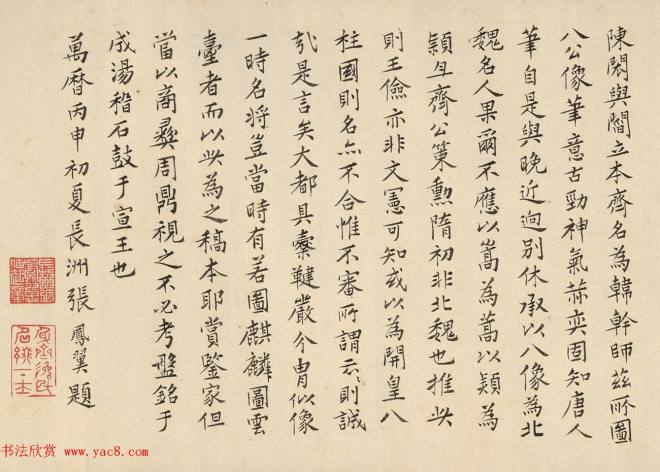 陳閎與閻立本齊名為韓幹師茲所圖
八公像筆意古勁神氣赫奕固知唐人
筆自是與晚近迥別休承以八像為北
魏名人果爾不應以嵩為蒿以頴為
顈且齊公策勳隋初非北魏也推此
則王儉亦非文憲可知或以為開皇八
柱國則名亦不合惟不審所謂云云則誠
哉是言矣大都具櫜鞬嚴分冑似像
一時名將豈當時有若圖麒麟圖雲
臺者而以此為之稿本耶賞鑒家但
當以商彝周鼎視之不必考盤銘于
成湯稽石鼓于宣王也
萬曆丙申初夏長洲張鳳翼題
书法欣赏 www.yac8.com